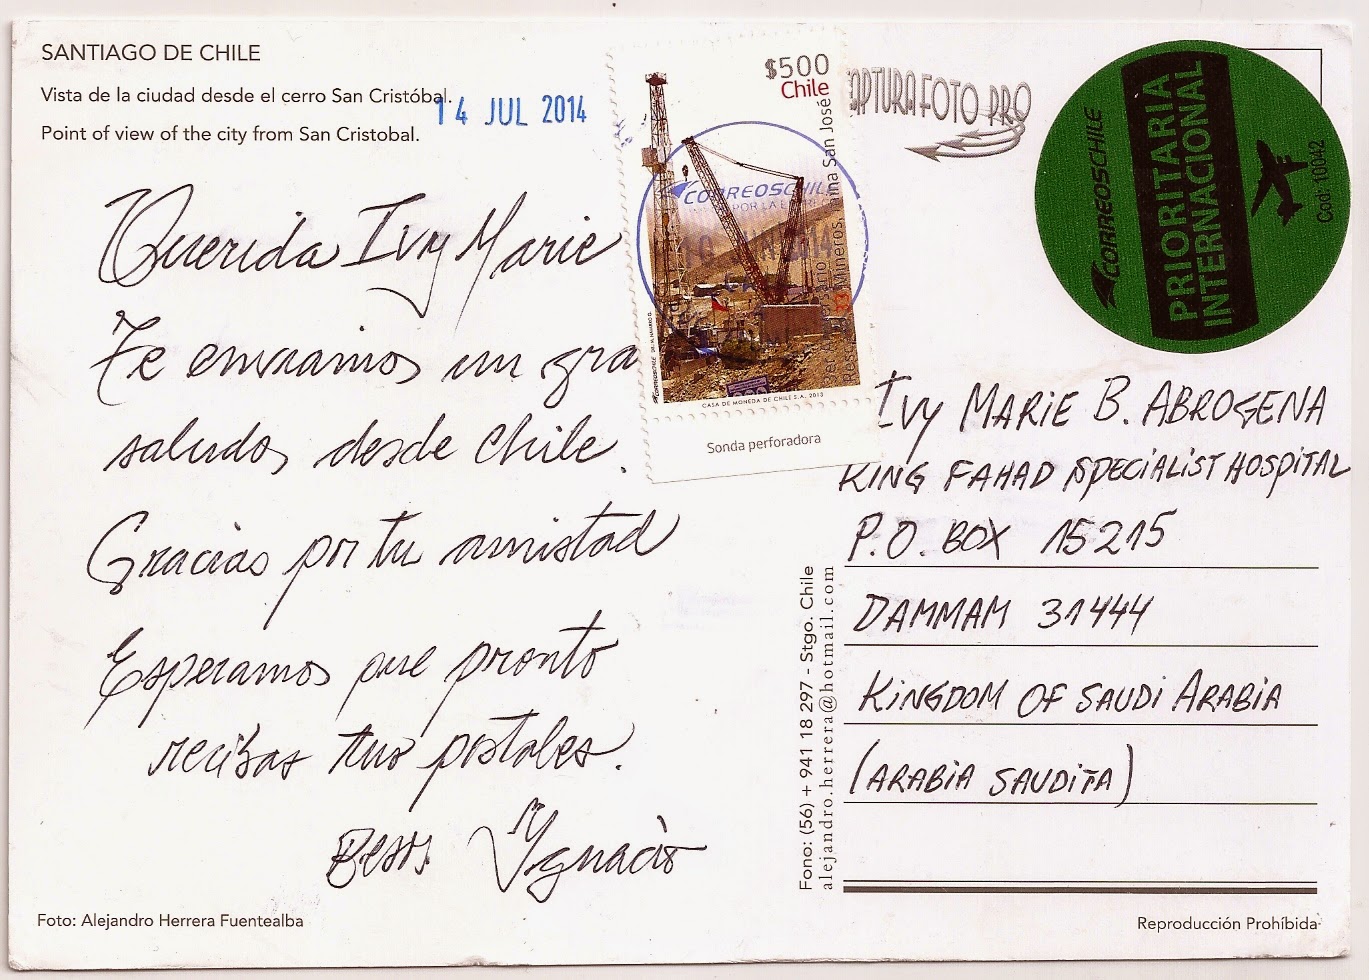 SANTIAGO DE CHILE
Vista de la ciudad desde el cerro San Cristóbal.
14 JUL 2014
Point of view of the city from San Cristobal.
Querida Ivy Marie
Te enviamos un gra
saludos desde Chile.
Gracias por tu amistad
Esperamos que pronto
recibas tus postales.
Besos Ignacio
Foto: Alejandro Herrera Fuentealba
$500
Chile
CORREOSCHILE
CASA DE MONEDA DE CHILE S.A. 2013
Sonda perforadora
33 Mineros mina San José
CAPTURA FOTO PRO
CORREOSCHILE
PRIORITARIA
INTERNACIONAL
Cod: 10042
IVY MARIE B. ABROGENA
KING FAHAD SPECIALIST HOSPITAL
P.O. BOX 15215
DAMMAM 31444
KINGDOM OF SAUDI ARABIA
(ARABIA SAUDITA)
Fono: (56) + 941 18 297 - Stgo. Chile
alejandro.herrera@hotmail.com
Reproducción Prohíbida